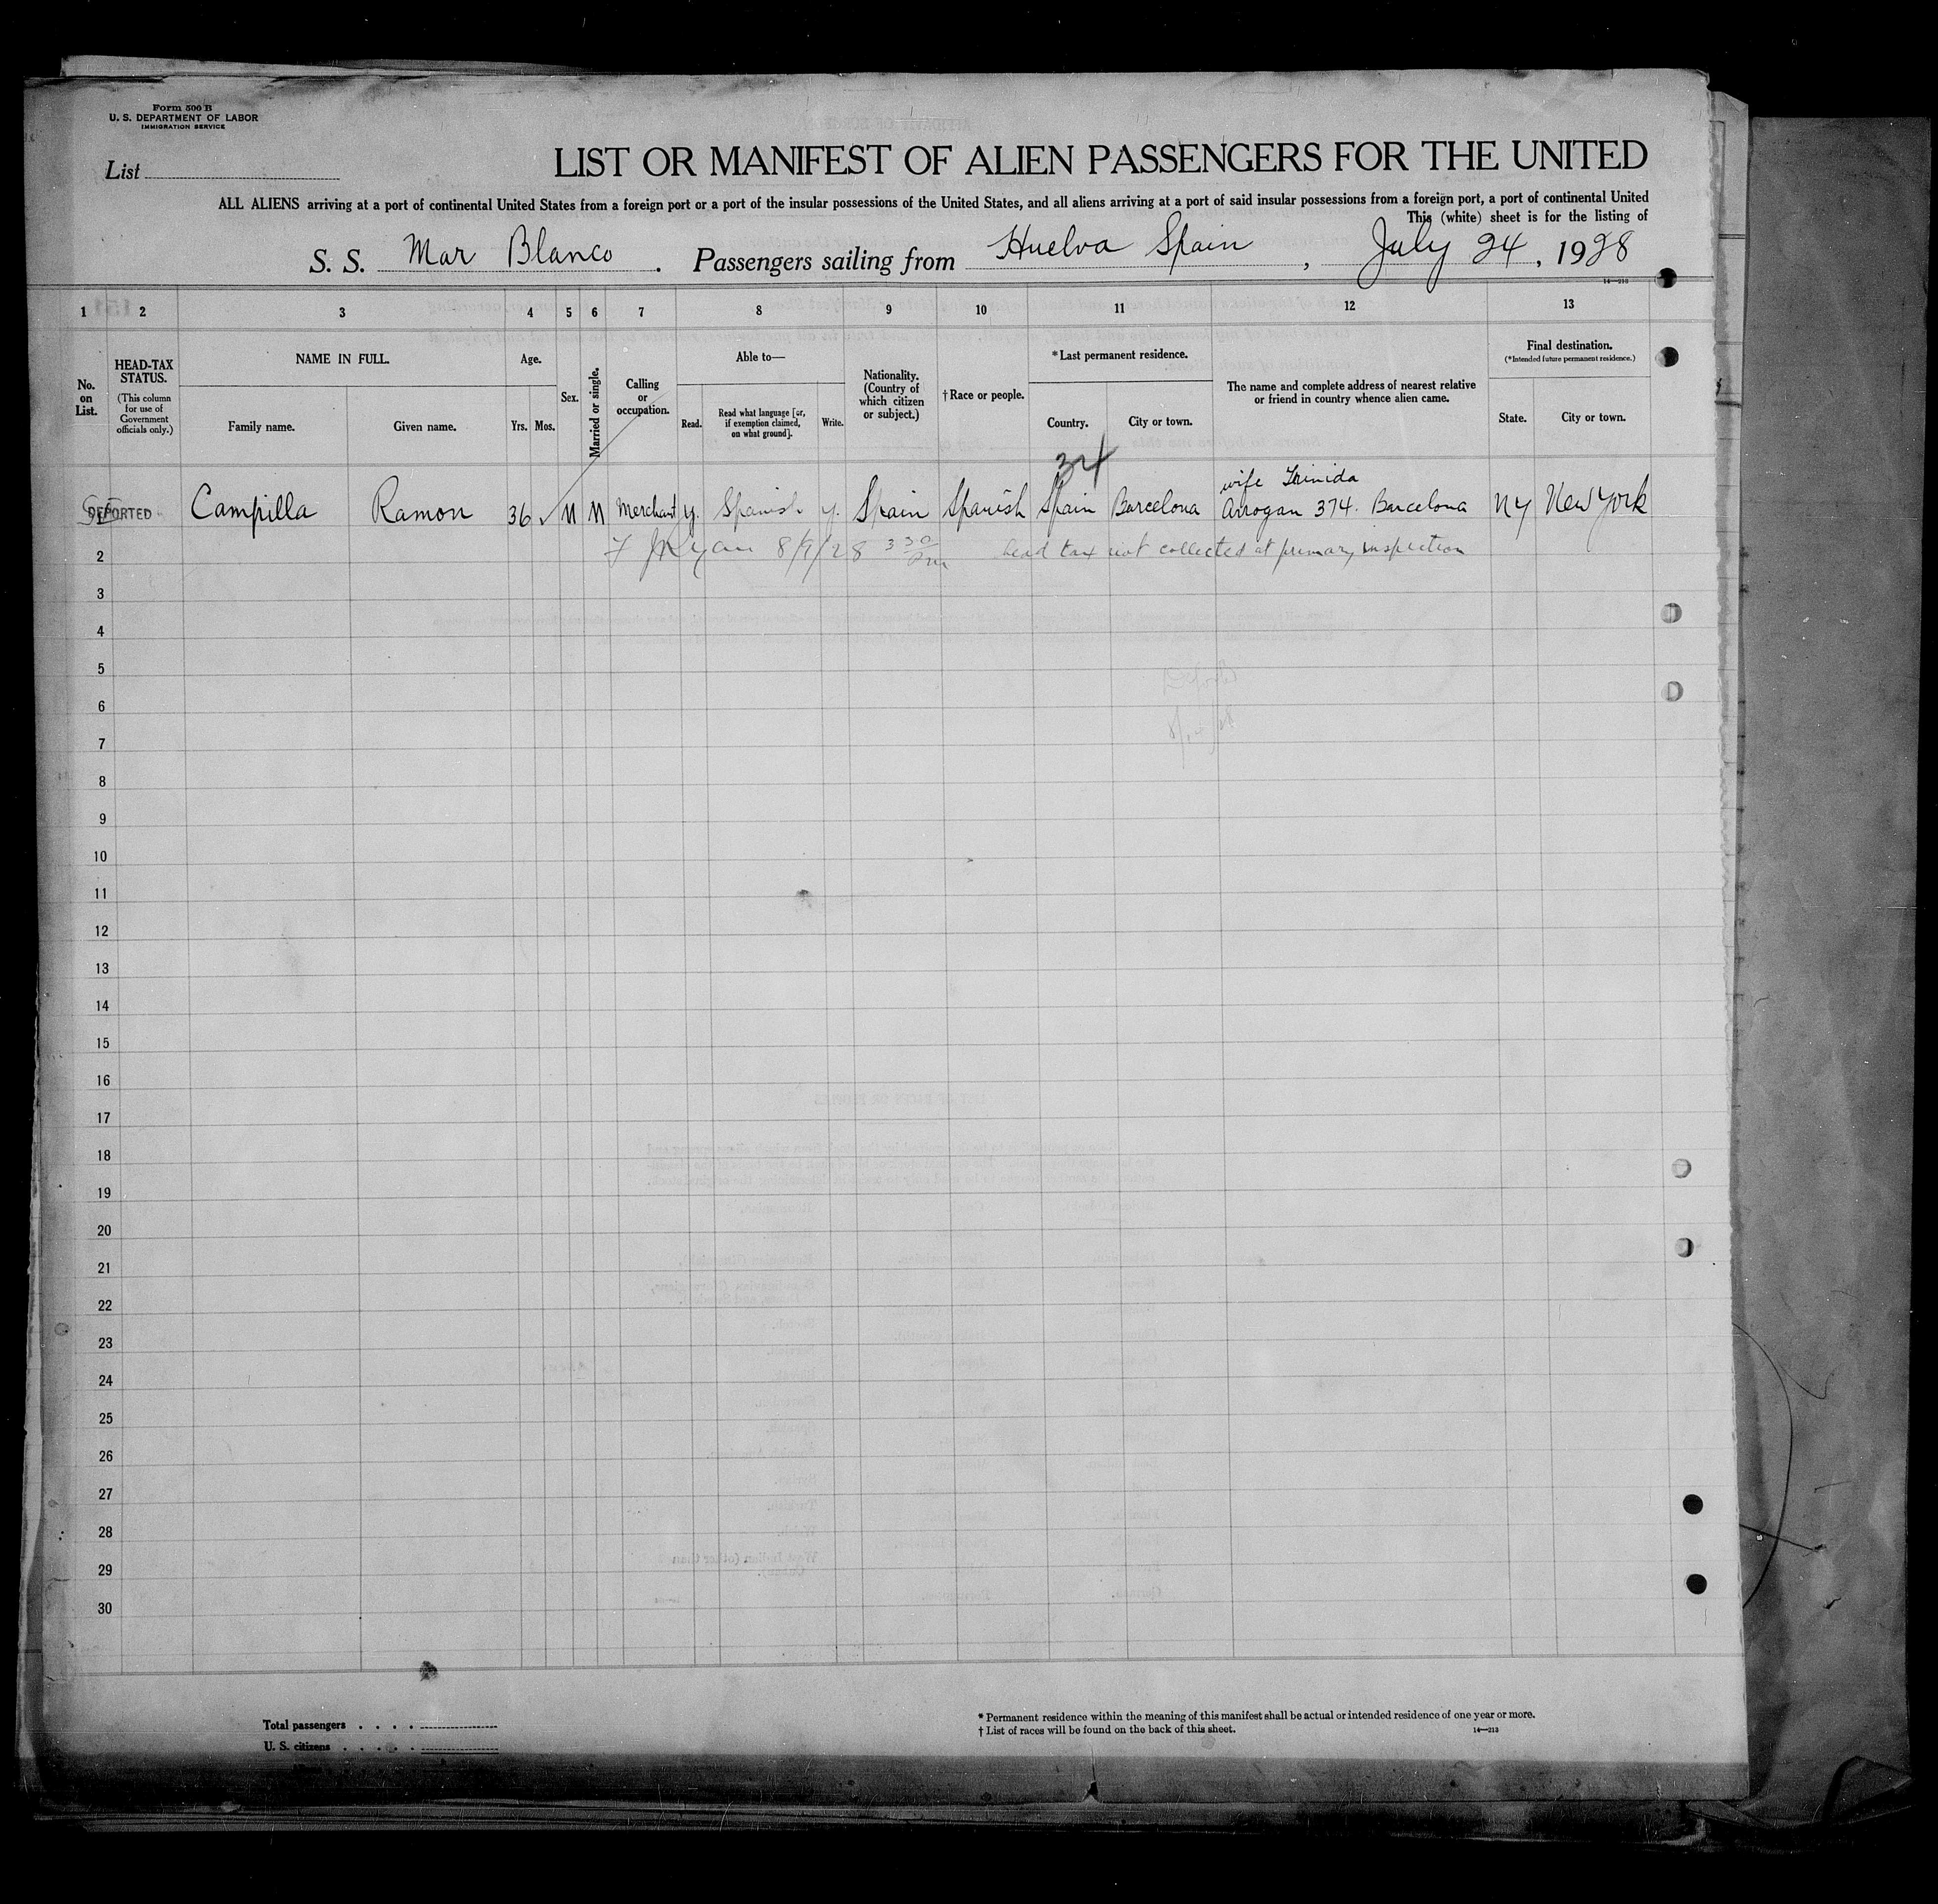 Form 500 B
U. S. DEPARTMENT OF LABOR
IMMIGRATION SERVICE
List
LIST OR MANIFEST OF ALIEN PASSENGERS FOR THE UNITED
ALL ALIENS arriving at a port of continental United States from a foreign port or a port of the insular possessions of the United States, and all aliens arriving at a port of said insular possessions from a foreign port, a port of continental United
This (white) sheet is for the listing of
S. S. Mar Blanco . Passengers sailing from Huelva Spain , July 24 , 1928
14—213
1 2 3 4 5 6 7 8 9 10 11 12 13
No. on List.
HEAD-TAX STATUS.
(This column for use of Government officials only.)
NAME IN FULL.
Family name. Given name.
Age.
Yrs. Mos.
Sex.
Married or single.
Calling or occupation.
Able to—
Read. Read what language [or, if exemption claimed, on what ground]. Write.
Nationality. (Country of which citizen or subject.)
†Race or people.
*Last permanent residence.
Country. City or town.
The name and complete address of nearest relative or friend in country whence alien came.
Final destination.
(*Intended future permanent residence.)
State. City or town.
wife Trinida
DEPORTED Campilla Ramon 36 M M Merchant y. Spanish y. Spain Spanish Spain Barcelona Arrogan 374. Barcelona NY New York
2 J Ryan 8/9/28 3 30 Pm head tax not collected at primary inspection
3
4
5
6
7
8
9
10
11
12
13
14
15
16
17
18
19
20
21
22
23
24
25
26
27
28
29
30
Total passengers . . . .
U. S. citizens . . . . .
* Permanent residence within the meaning of this manifest shall be actual or intended residence of one year or more.
† List of races will be found on the back of this sheet.
14—213